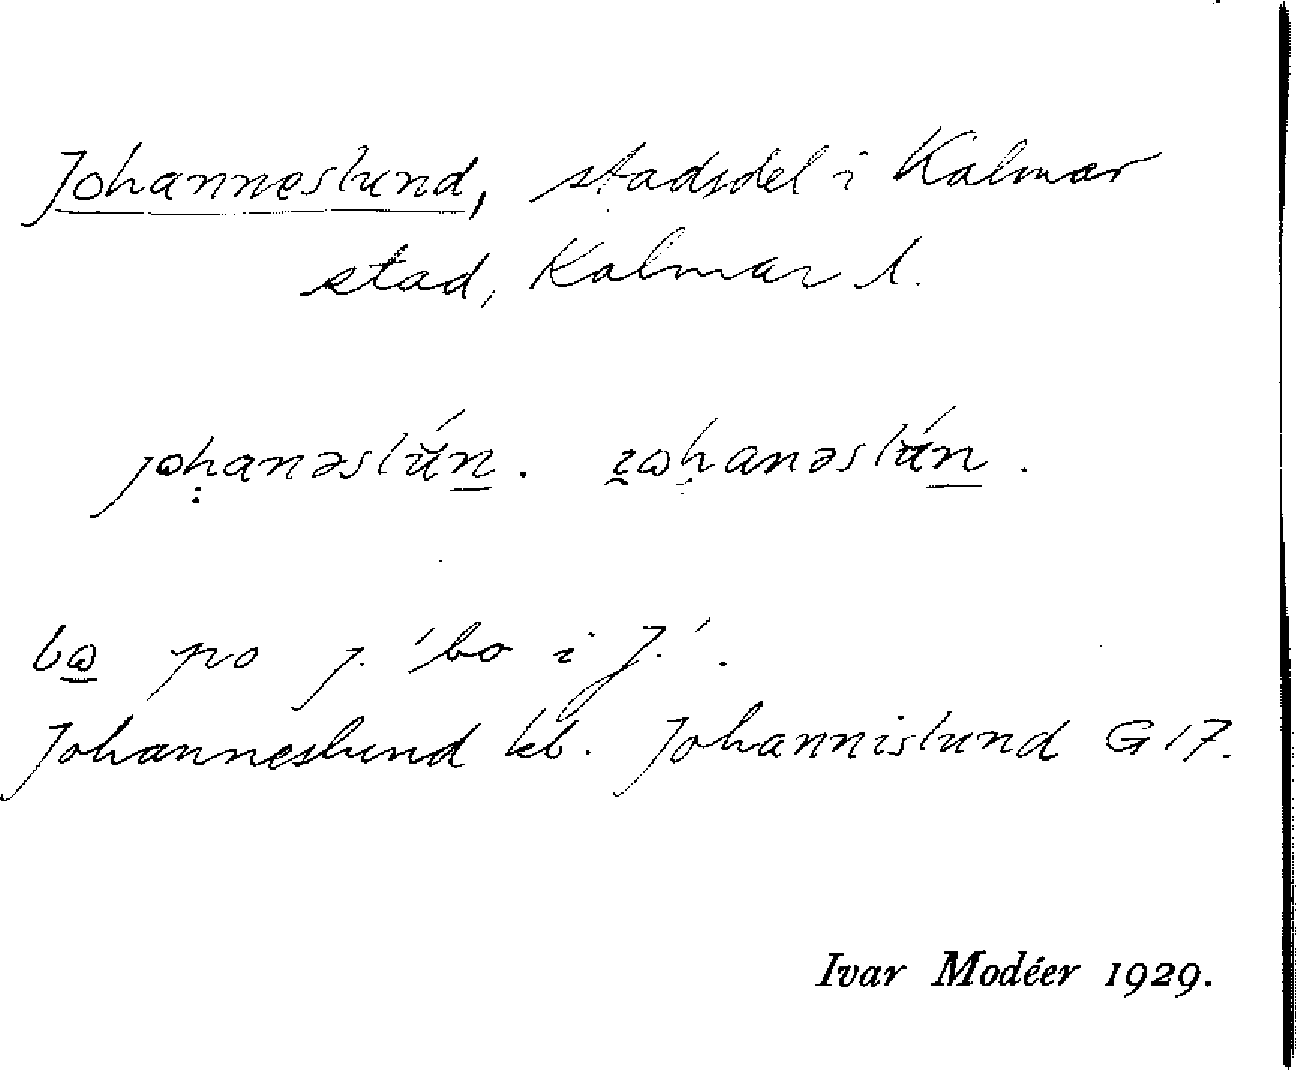 Johanneslund, stadsdel i Kalmar
stad, Kalmar l.
johanəslún. ꞩωhanəslún.
bω po j. 'bo i J.'.
Johanneslund kb. Johannislund G 17.
Ivar Modéer 1929.